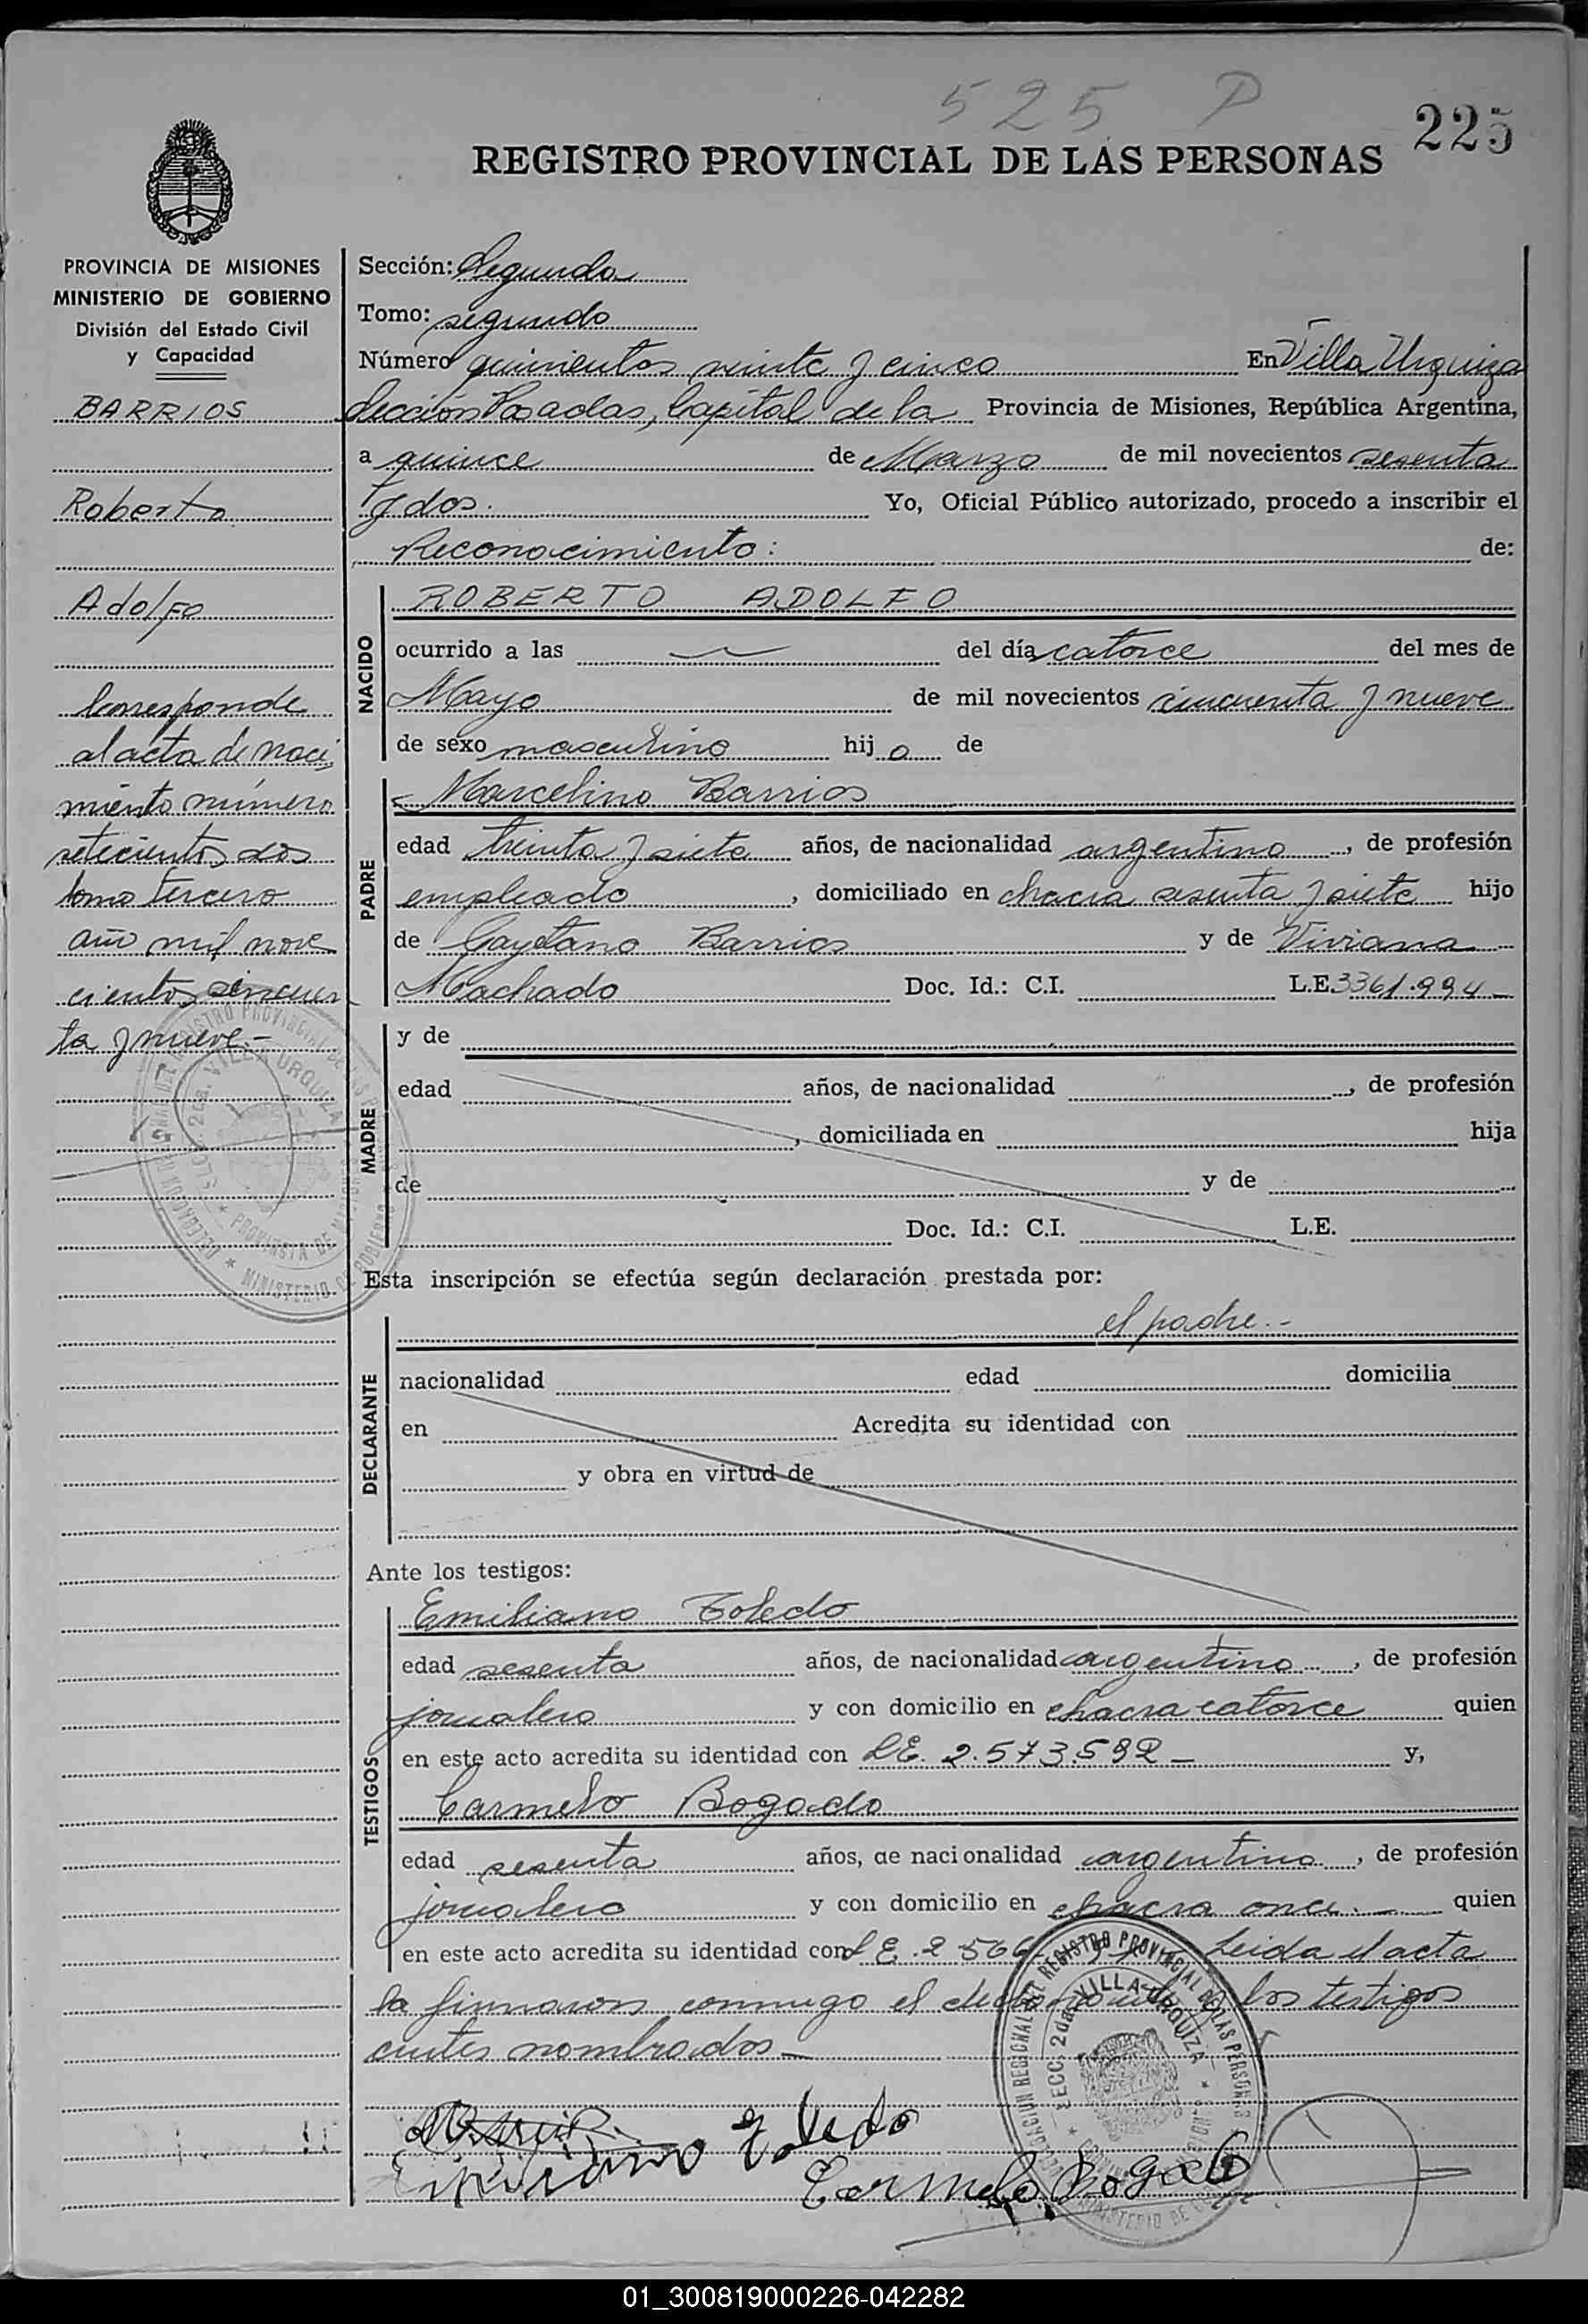 525 P
225
REGISTRO PROVINCIAL DE LAS PERSONAS
PROVINCIA DE MISIONES
MINISTERIO DE GOBIERNO
División del Estado Civil
y Capacidad
BARRIOS
Roberto
Adolfo
Corresponde
al acta de naci
miento número
setecientos dos
tomo tercero
año mil nove
cientos cincuen
ta y nueve.-
Sección: Segunda
Tomo: segundo
Número quinientos veinte y cinco En Villa Urquiza
Sección Posadas, Capital de la Provincia de Misiones, República Argentina,
a quince de Marzo de mil novecientos sesenta
y dos. Yo, Oficial Público autorizado, procedo a inscribir el
Reconocimiento: de:
NACIDO
ROBERTO ADOLFO
ocurrido a las del día catorce del mes de
Mayo de mil novecientos cincuenta y nueve
de sexo masculino hijo de
PADRE
Marcelino Barrios
edad treinta y siete años, de nacionalidad argentino, de profesión
empleado, domiciliado en chacra sesenta y siete hijo
de Gayetano Barrios y de Viviana
Machado Doc. Id.: C.I. L.E. 3361.994-
MADRE
y de
edad años, de nacionalidad , de profesión
, domiciliada en hija
de y de
Doc. Id.: C.I. L.E.
Esta inscripción se efectúa según declaración prestada por:
el padre.-
DECLARANTE
nacionalidad edad domicilia
en Acredita su identidad con
y obra en virtud de
Ante los testigos:
TESTIGOS
Emiliano Toledo
edad sesenta años, de nacionalidad argentino, de profesión
jornalero y con domicilio en chacra catorce quien
en este acto acredita su identidad con LE. 2.573.592- y,
Carmelo Bogado
edad sesenta años, de nacionalidad argentino, de profesión
jornalero y con domicilio en chacra once.- quien
en este acto acredita su identidad con LE. 2 566 Leida el acta
la firmaron conmigo el declarante los testigos
antes nombrados-
Emiliano Toledo
Carmelo Bogado
DELEGACION REGIONAL DEL REGISTRO PROVINCIAL DE LAS PERSONAS
SECC. 2da. VILLA URQUIZA
PROVINCIA DE MISIONES
MINISTERIO DE GOBIERNO
01_300819000226-042282